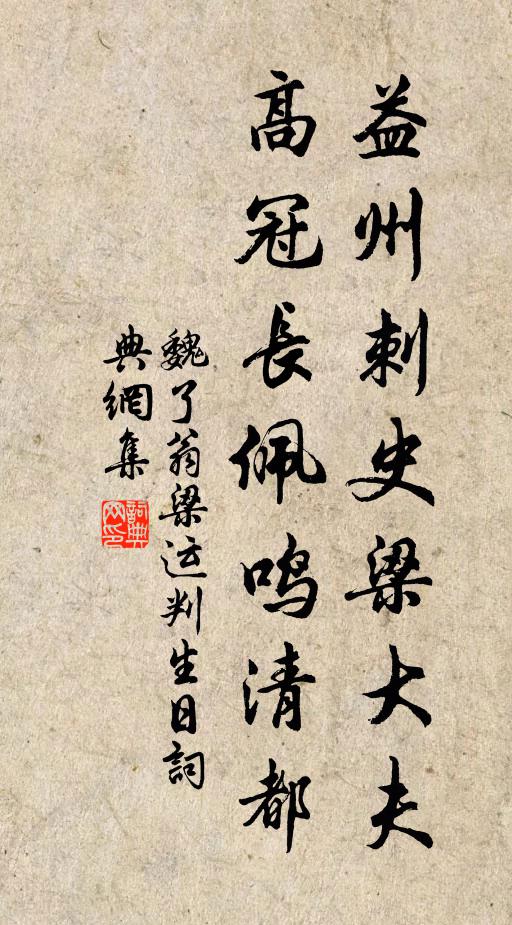 益州刺史梁大夫
高冠長佩鳴清都
魏了翁梁运判生日詞
典網集
詞典网印